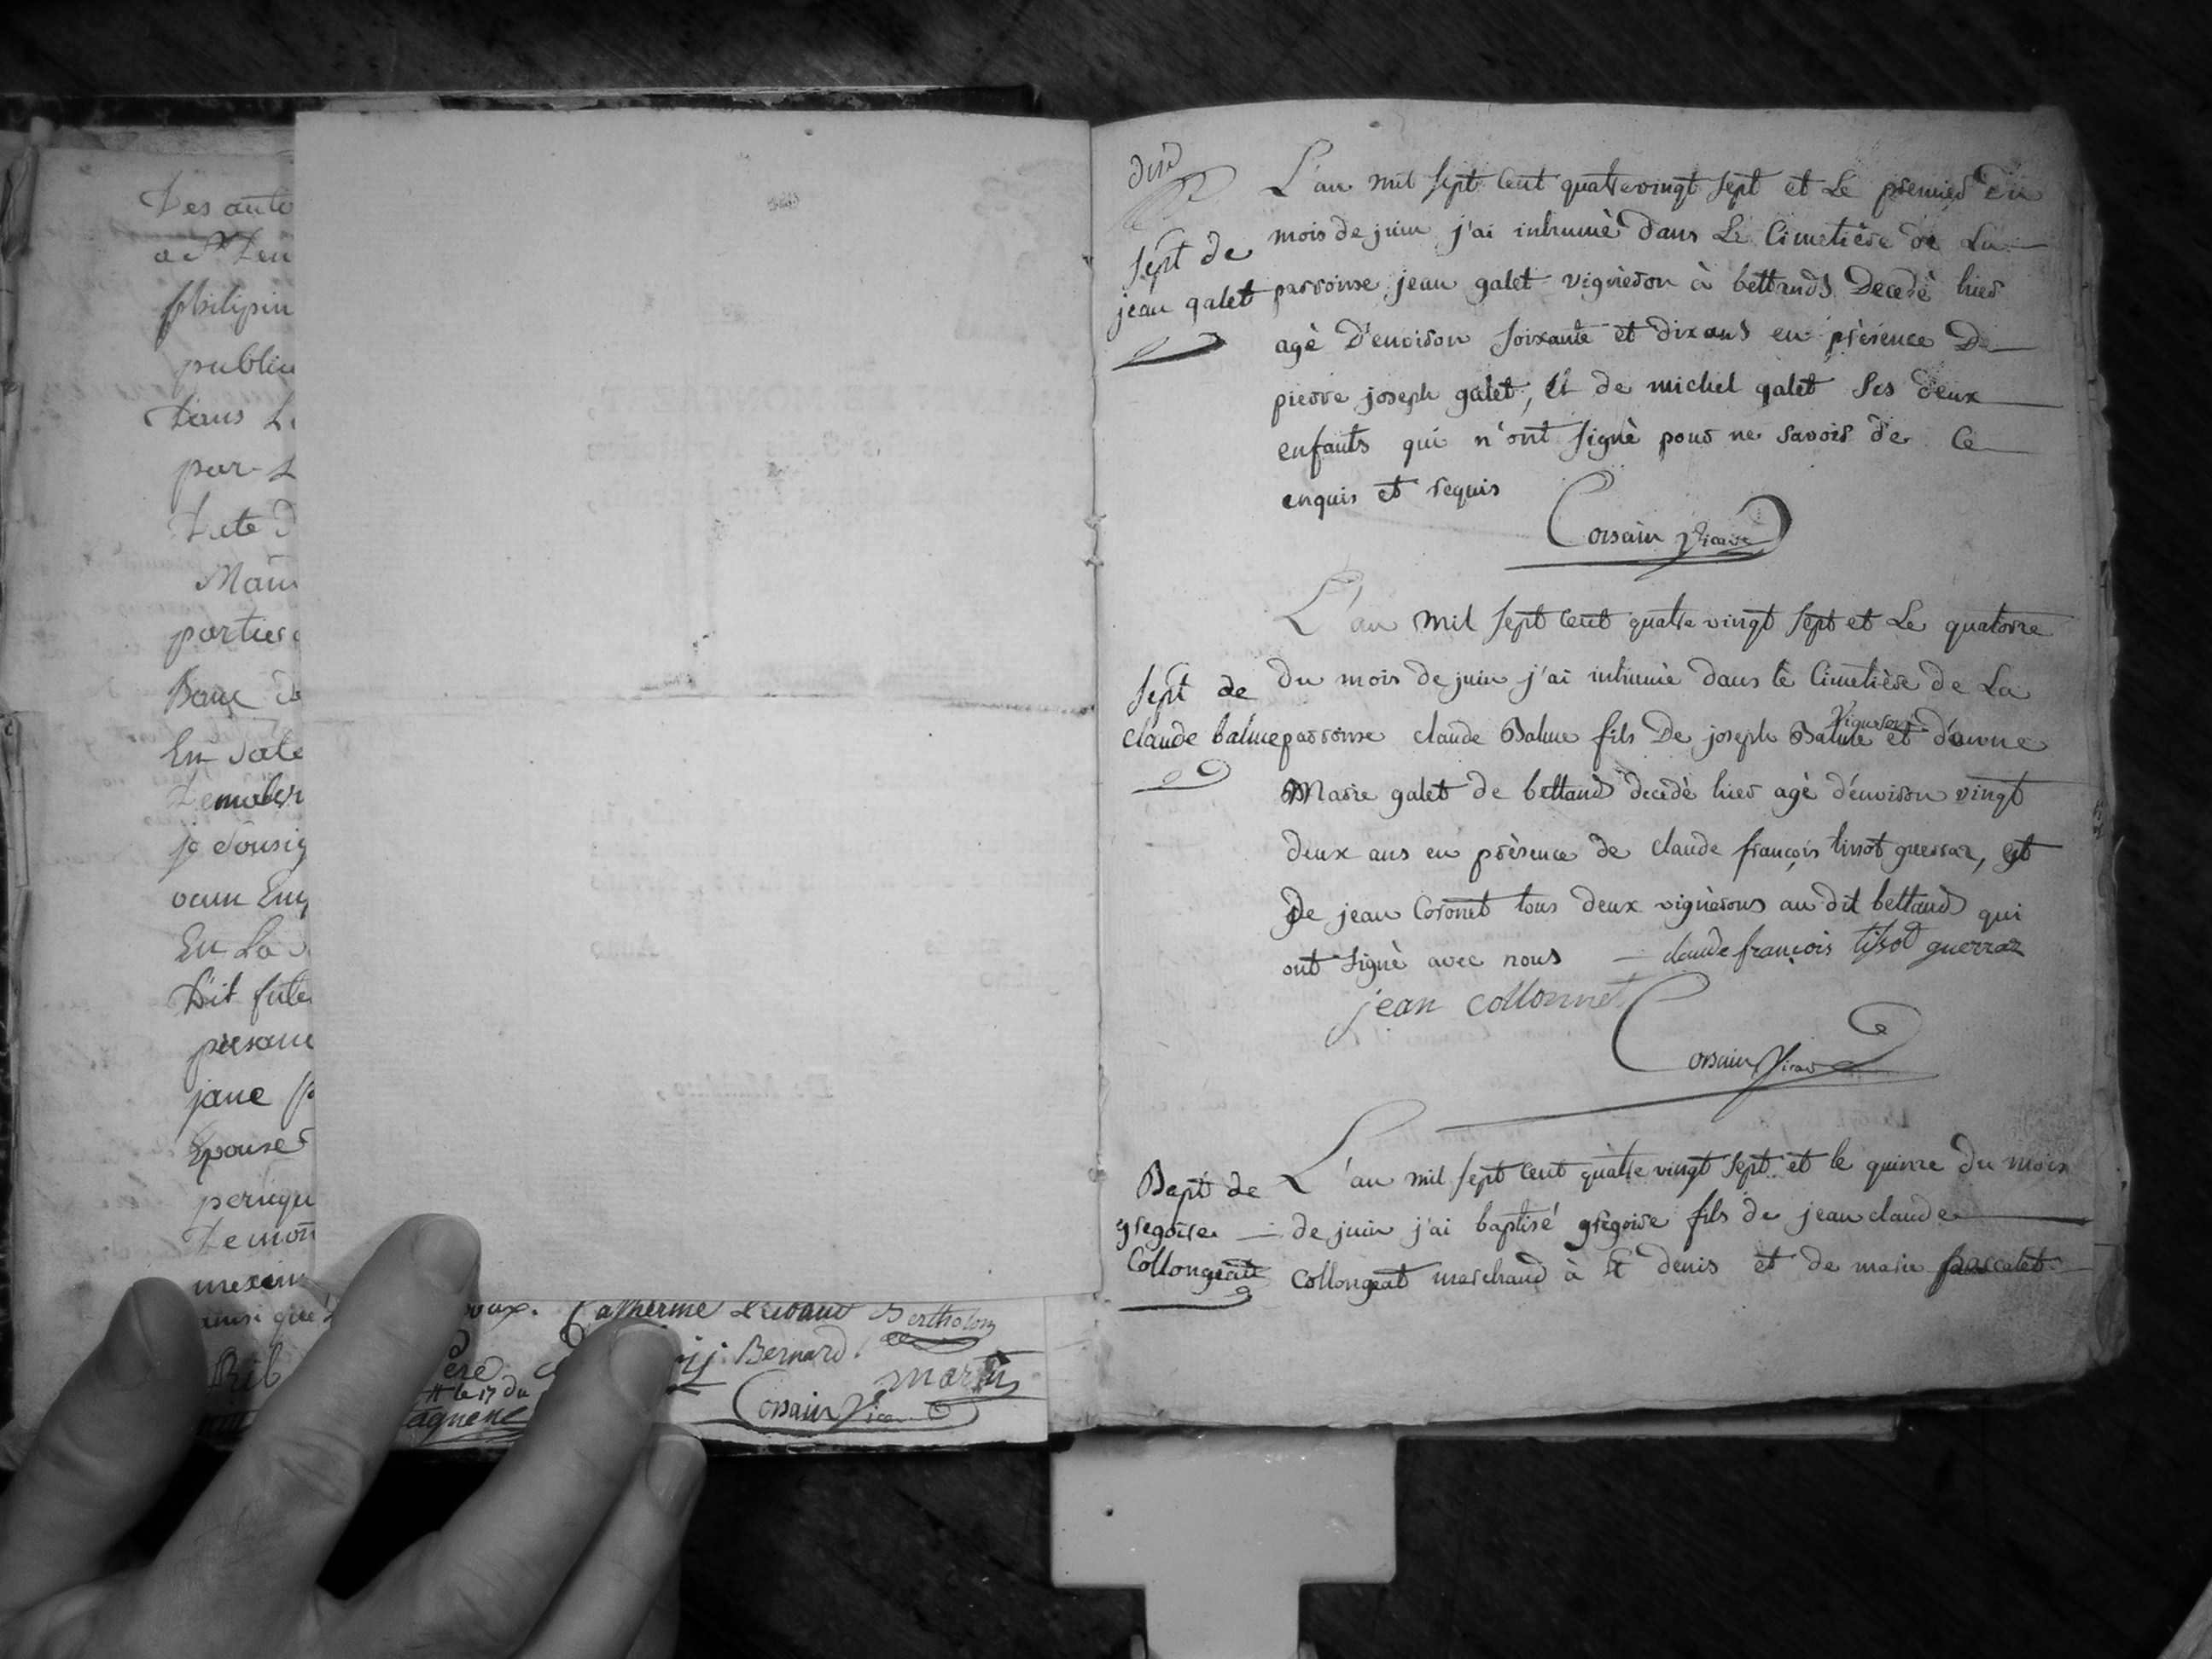 Des auto
a St Den
philipin
publiu
Dans L
par L
Date D
Mam
parties
Bouc de
En date
Demeber
je sousig
ocun Em
En La
Dit fute
presane
jane
Epouse
perugu
Demon
mexim
ainsi que
Rib
oux. Catherine Bertholon
ere j: Bernard.
le 17 du martin
agnene Corsain Vicaire
L'an mil sept cent quatrevingt sept et Le premier du
mois de juin j'ai inhumè dans Le Cimetière de La
sept de
jean galet
parroisse jean galet vignèron à bettands Decedè hier
agè D'environ soixante et dix ans en prèsence De
pierre joseph galet, Et de michel galet ses deux
enfants qui n'ont signè pour ne savoir de Ce
enquis et requis
Corsain Vicaire
L'an mil sept cent quatre vingt sept et Le quatorze
sept de
claude balme
du mois de juin j'ai inhumè dans le Cimetière de La
vigneron
parroisse claude Balme fils De joseph Balme et d'anne
Marie galet de bettand decedè hier agè d'environ vingt
deux ans en prèsence de claude françois tissot guerraz, et
De jean Coronet tous deux vignèrons au dit bettand qui
ont signè avec nous claude françois tissot guerraz
jean collonnet
Corsain Vicaire
Bapt de
gregoire
Collongeat
L'an mil sept cent quatre vingt sept et le quinze du mois
de juin j'ai baptisé grègoire fils de jean claude
Collongeat marchand à st denis et de marie pascalet